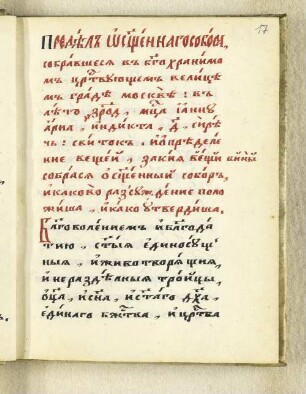 17
Предѣлъ ѡсщ҃еннагособора,
собравшесѧ въ бг҃охранимо
мъ црт҃вующемъ велицѣ
мъ градѣ москвѣ: въ
лѣто ,зрѯд, мцⷭ҇а іаннꙋ
арїа, индикта, д҃, сирѣ
чь: свитокъ, иѡпредѣле
ение вещей, закиѧ вещи
собрасѧ ѡсщ҃енный соборъ,
икаково разсуждение поло
жиша, икако утвердиша.
Благоволениемъ иблагода
тию, ст҃ыѧ единосущ
ныѧ, иживотворѧщиѧ,
инераздѣлныѧ трои̑цы,
ѻц҃а, исн҃а, ист҃аго дх҃а,
единаго бжт҃ва, и црт҃ва